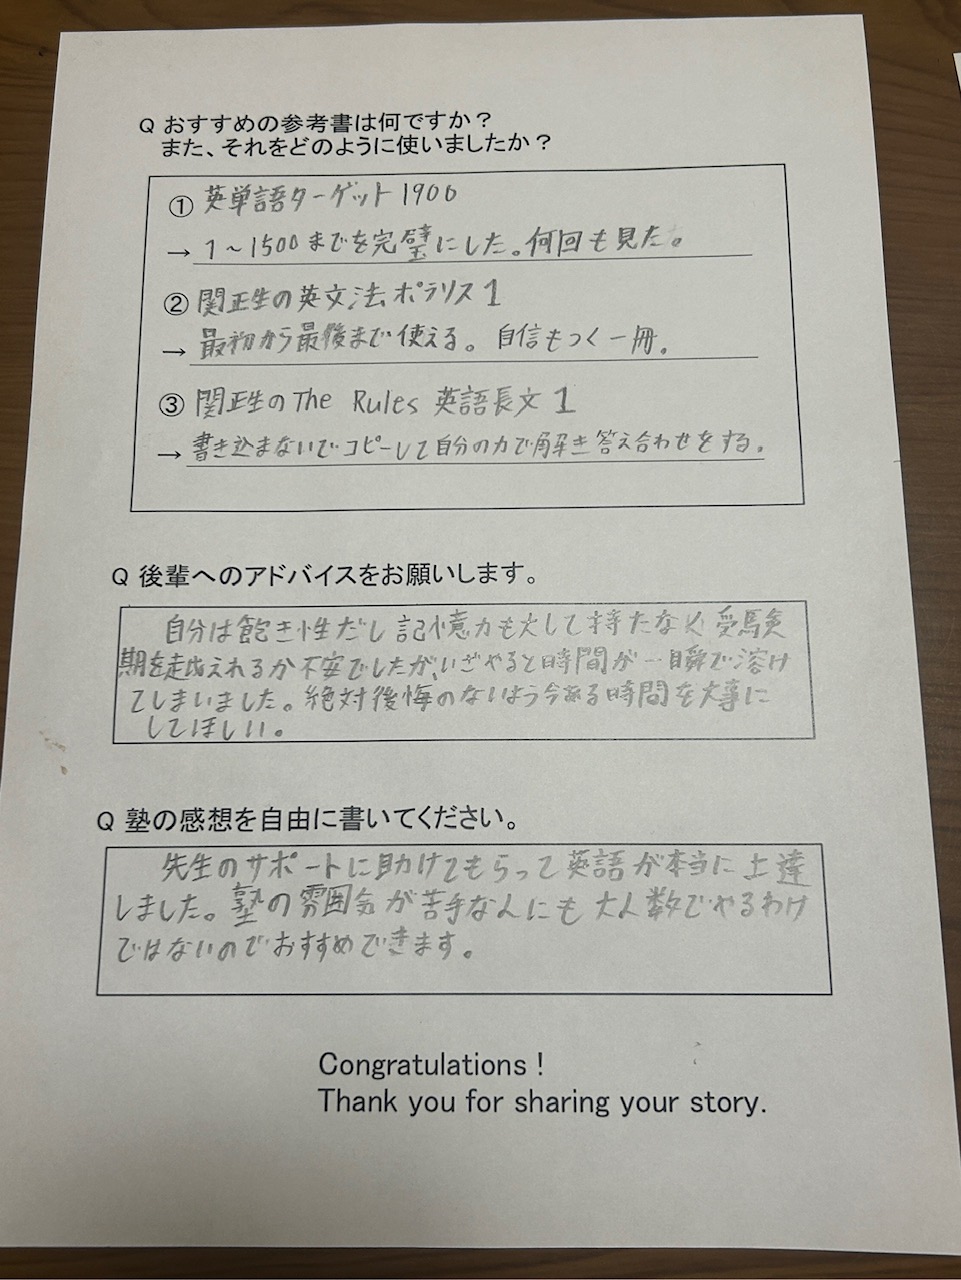 Q おすすめの参考書は何ですか?
また、それをどのように使いましたか?
① 英単語ターゲット1900
→ 1～1500までを完璧にした。何回も見た。
② 関正生の英文法ポラリス1
→ 最初から最後まで使える。自信もつく一冊。
③ 関正生のThe Rules 英語長文1
→ 書き込まないでコピーして自分の力で解き答え合わせをする。
Q 後輩へのアドバイスをお願いします。
自分は飽き性だし記憶力も大して持たなく受験
期を越えれるか不安でしたが、いざやると時間が一瞬で溶け
てしまいました。絶対後悔のないよう今ある時間を大事に
してほしい。
Q 塾の感想を自由に書いてください。
先生のサポートに助けてもらって英語が本当に上達
しました。塾の雰囲気が苦手な人にも大人数でやるわけ
ではないのでおすすめできます。
Congratulations !
Thank you for sharing your story.